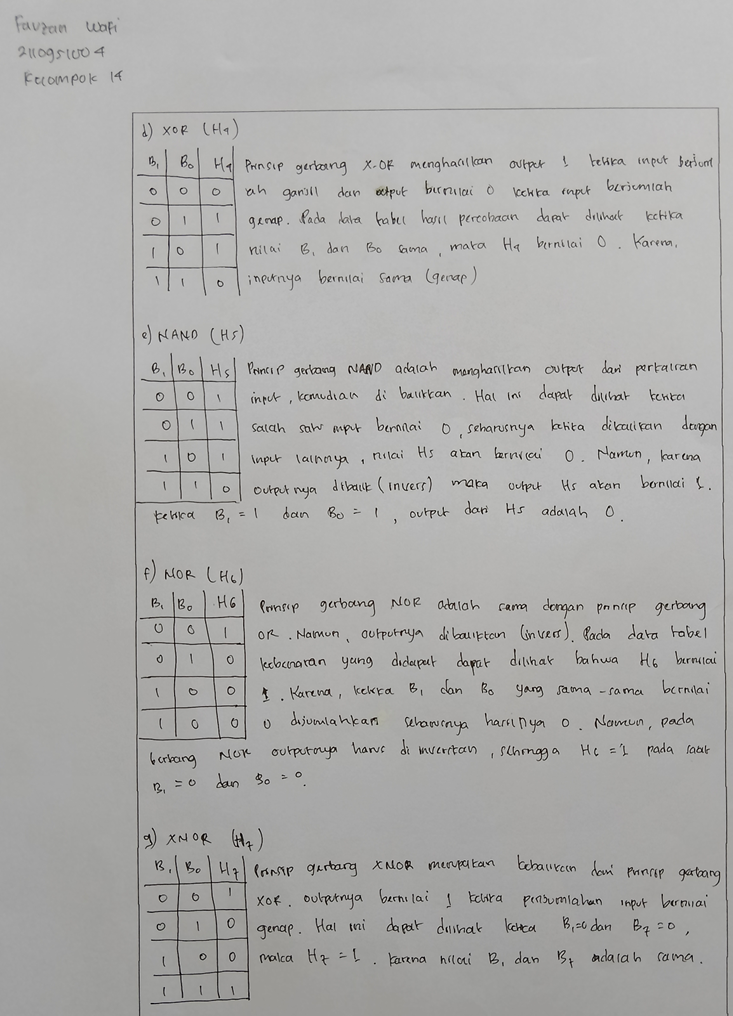 Fauzan Wafi
2110951004
Kelompok 14
d) XOR (H4)
B1 B0 H4 Prinsip gerbang X-OR menghasilkan output 1 ketika input berjuml
0 0 0 ah ganjil dan output bernilai 0 ketika input berjumlah
0 1 1 genap. Pada data tabel hasil percobaan dapat dilihat ketika
1 0 1 nilai B1 dan B0 sama, maka H4 bernilai 0. Karena,
1 1 0 inputnya bernilai sama (genap)
e) NAND (H5)
B1 B0 H5 Prinsip gerbang NAND adalah menghasilkan output dari perkalian
0 0 1 input, kemudian di balikkan. Hal ini dapat dilihat ketika
0 1 1 salah satu input bernilai 0, seharusnya ketika dikalikan dengan
1 0 1 input lainnya, nilai H5 akan bernilai 0. Namun, karena
1 1 0 outputnya dibalik (invers) maka output H5 akan bernilai 1.
Ketika B1 = 1 dan B0 = 1, output dari H5 adalah 0.
f) NOR (H6)
B1 B0 H6 Prinsip gerbang NOR adalah sama dengan prinsip gerbang
0 0 1 OR. Namun, outputnya dibalikkan (invers). Pada data tabel
0 1 0 kebenaran yang didapat dapat dilihat bahwa H6 bernilai
1 0 0 1. Karena, ketika B1 dan B0 yang sama-sama bernilai
1 0 0 0 dijumlahkan seharusnya hasilnya 0. Namun, pada
Gerbang NOR outputnya harus di inverskan, sehingga H6 = 1 pada saat
B1 = 0 dan B0 = 0.
g) XNOR (H7)
B1 B0 H7 Prinsip gerbang XNOR merupakan kebalikan dari prinsip gerbang
0 0 1 XOR. outputnya bernilai 1 ketika penjumlahan input bernilai
0 1 0 genap. Hal ini dapat dilihat ketika B1=0 dan B7=0,
1 0 0 maka H7 = 1. Karena nilai B1 dan B7 adalah sama.
1 1 1